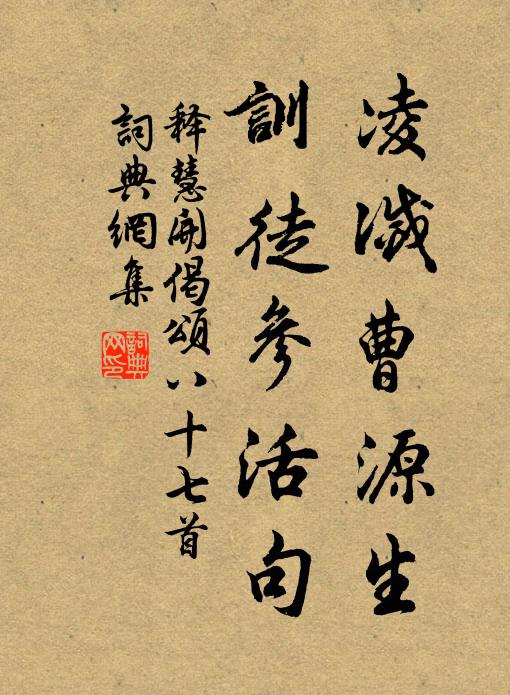 凌滅曹源生
訓徒參活句
释慧開偈頌八十七首
詞典網集
詞典
网印